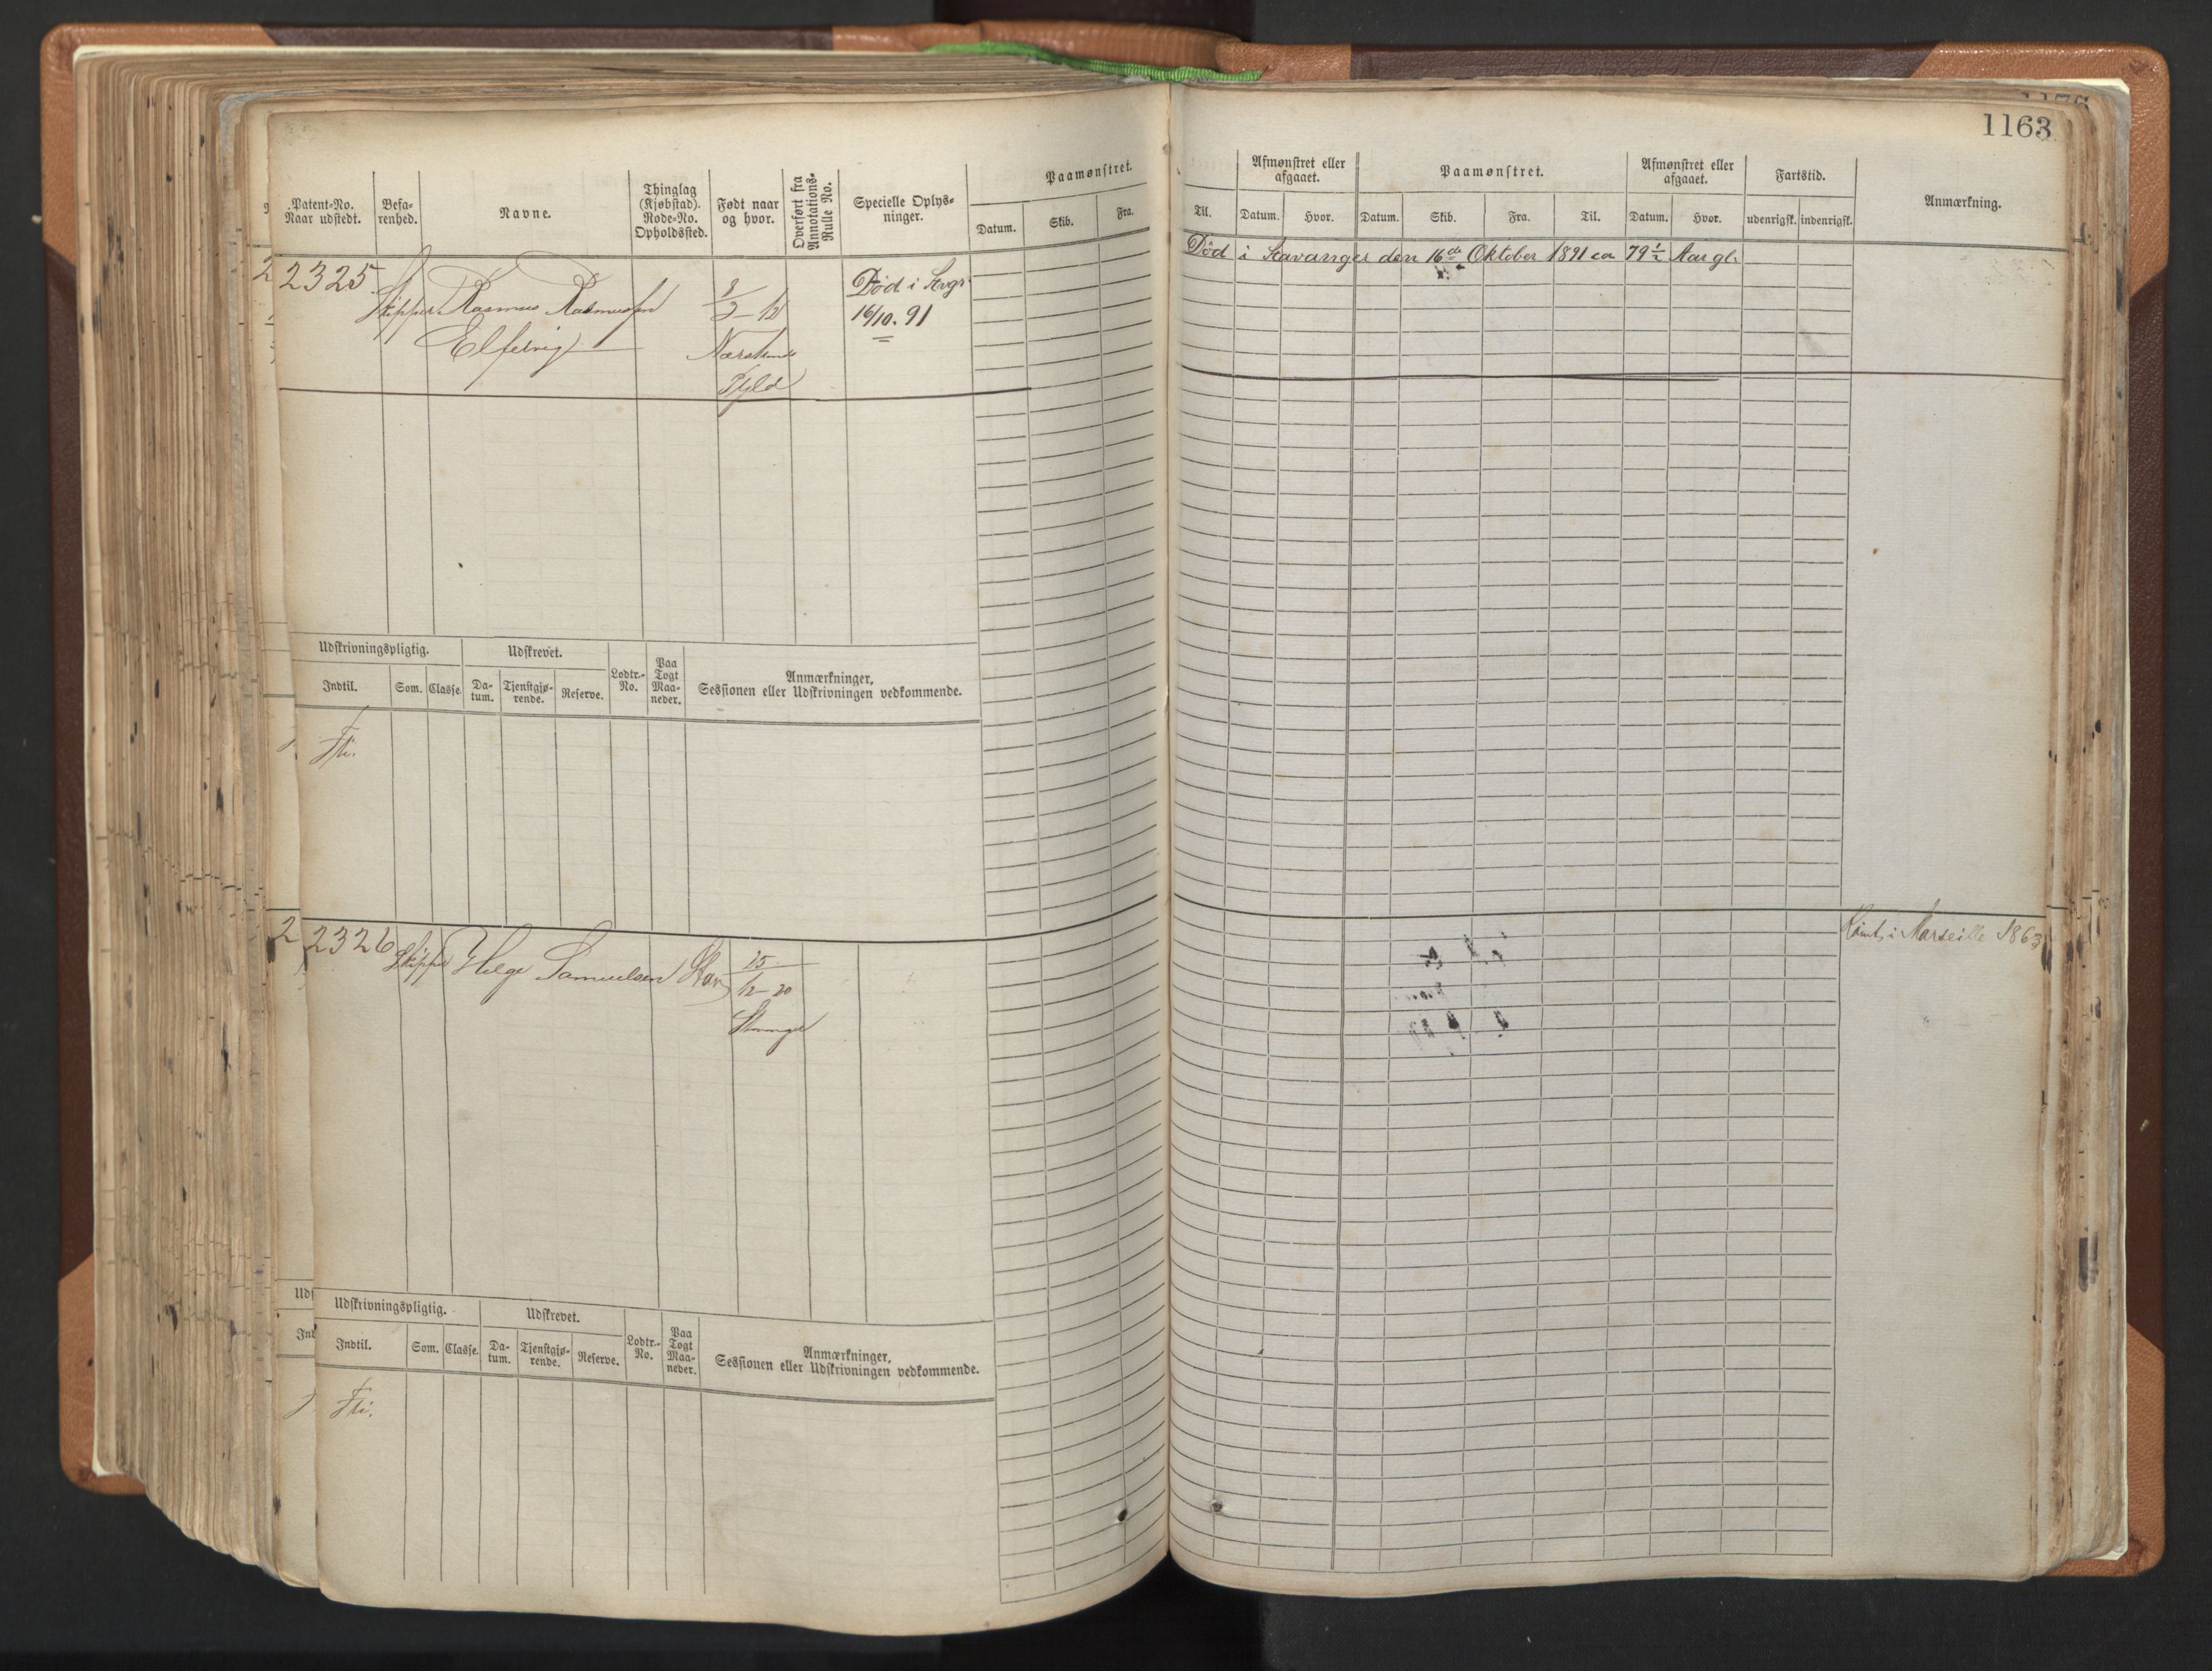 1163
Patent-No. Naar udstedt.
Befa-renhed.
Navne.
Thinglag (Kjøbstad). Rode-No. Opholdssted.
Født naar og hvor.
Overført fra Annotations-Rulle No.
Specielle Oplys-ninger.
Paamønstret.
Datum. Skib. Fra.
Til.
Afmønstret eller afgaaet.
Datum. Hvor.
Paamønstret.
Datum. Skib. Fra. Til.
Afmønstret eller afgaaet.
Datum. Hvor.
Fartstid.
udenrigsk. indenrigsk.
Anmærkning.
2325 Skipper Rasmus Rasmussen
Elfevig
8/3-12
Nærstrand
Død i Svgr.
16/10. 91
Død i Stavanger den 16de Oktober 1891 ca 79½ Aar gl.
Udskrivningspligtig. Udskrevet.
Indtil. Som. Classe. Da-tum. Tjenstgjø-rende. Reserve. Lodtr.-No. Paa Togt Maa-neder.
Anmærkninger,
Sessionen eller Udskrivningen vedkommende.
Fri.
2326 Skipper Helge Samuelsen Stav
15/12-20
Stavanger
i Marseille 1863
Udskrivningspligtig. Udskrevet.
Indtil. Som. Classe. Da-tum. Tjenstgjø-rende. Reserve. Lodtr.-No. Paa Togt Maa-neder.
Anmærkninger,
Sessionen eller Udskrivningen vedkommende.
Fri.